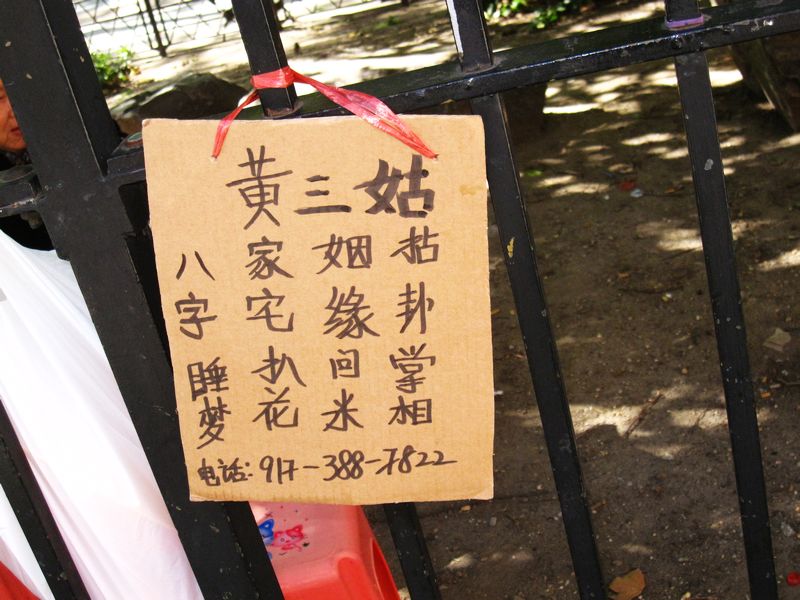 黄三姑
拈卦掌相
姻缘问米
家宅扒花
八字睡梦
电话:917-388-7822